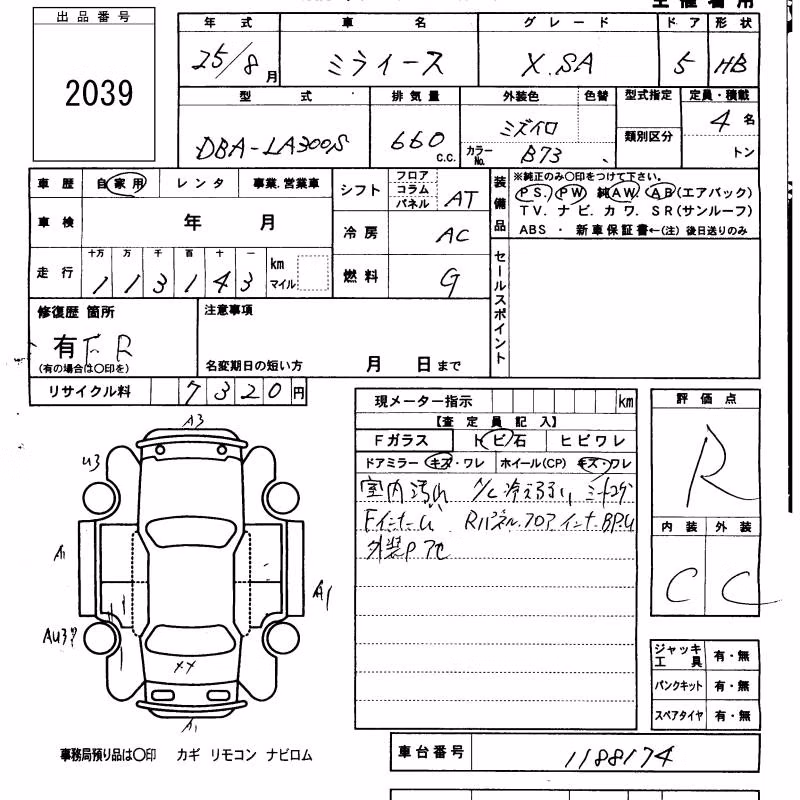 出品番号
2039
年式 車名 グレード ドア 形状
25/8月 ミライース X.SA 5 HB
型式 排気量 外装色 色替 型式指定 定員・積載
DBA-LA300S 660 C.C. ミズイロ 類別区分 4名
カラーNo. B73 トン
車歴 自家用 レンタ 事業.営業車
シフト フロア コラム パネル AT
装備品 ※純正のみ○印をつけて下さい。
PS. PW 純AW. AB(エアバック)
TV. ナビ. カワ. SR(サンルーフ)
ABS ・ 新車保証書←(注)後日送りのみ
車検 年 月
冷房 AC
走行 十万 万 千 百 十 一 km マイル
113143
燃料 G
セールスポイント
修復歴 箇所 注意事項
有 F R
(有の場合は○印を) 名変期日の短い方 月 日まで
リサイクル料 7320円
現メーター指示 km
【査定員記入】
Fガラス トビ石 ヒビワレ
ドアミラー キズ・ワレ ホイール(CP) キズ・ワレ
室内汚れ A/C冷え弱い シートコゲ
FインナーU Rパネル.フロアインナーBP.U
外装P
評価点
R
内装 外装
C C
A3
U3
A1
A1
AU3
XX
A1
ジャッキ工具 有・無
パンクキット 有・無
スペアタイヤ 有・無
事務局預り品は○印 カギ リモコン ナビロム
車台番号 1188174